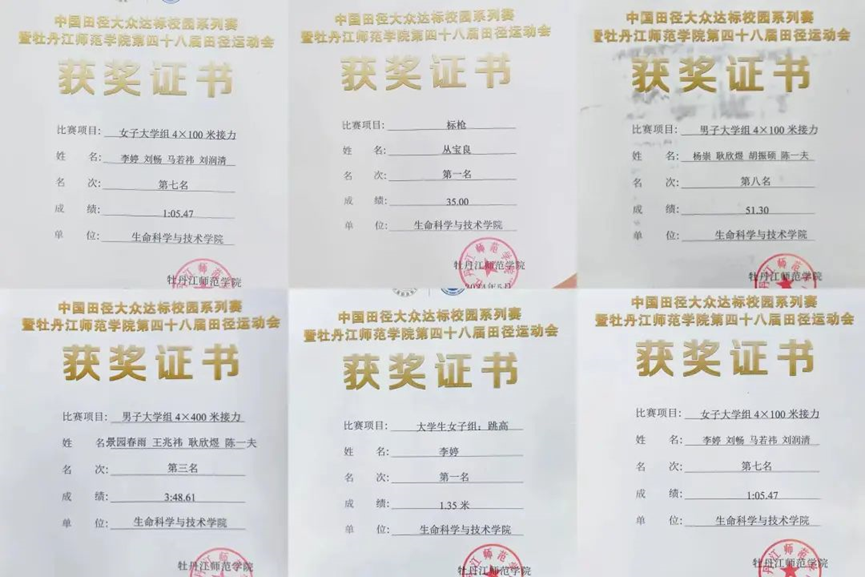 中国田径大众达标校园系列赛
暨牡丹江师范学院第四十八届田径运动会
获奖证书
比赛项目: 女子大学组4×100米接力
姓 名: 李婷 刘畅 马若祎 刘润清
名 次: 第七名
成 绩: 1:05.47
单 位: 生命科学与技术学院
牡丹江师范学院
中国田径大众达标校园系列赛
暨牡丹江师范学院第四十八届田径运动会
获奖证书
比赛项目: 标枪
姓 名: 丛宝良
名 次: 第一名
成 绩: 35.00
单 位: 生命科学与技术学院
牡丹江师范学院
中国田径大众达标校园系列赛
暨牡丹江师范学院第四十八届田径运动会
获奖证书
比赛项目: 男子大学组4×100米接力
姓 名: 杨崇 耿欣煜 胡振硕 陈一夫
名 次: 第八名
成 绩: 51.30
单 位: 生命科学与技术学院
牡丹江师范学院
中国田径大众达标校园系列赛
暨牡丹江师范学院第四十八届田径运动会
获奖证书
比赛项目: 男子大学组4×400米接力
姓 名 景园春雨 王兆祎 耿欣煜 陈一夫
名 次: 第三名
成 绩: 3:48.61
单 位: 生命科学与技术学院
牡丹江师范学院
中国田径大众达标校园系列赛
暨牡丹江师范学院第四十八届田径运动会
获奖证书
比赛项目: 大学生女子组：跳高
姓 名: 李婷
名 次: 第一名
成 绩: 1.35米
单 位: 生命科学与技术学院
牡丹江师范学院
中国田径大众达标校园系列赛
暨牡丹江师范学院第四十八届田径运动会
获奖证书
比赛项目: 女子大学组4×100米接力
姓 名: 李婷 刘畅 马若祎 刘润清
名 次: 第七名
成 绩: 1:05.47
单 位: 生命科学与技术学院
牡丹江师范学院